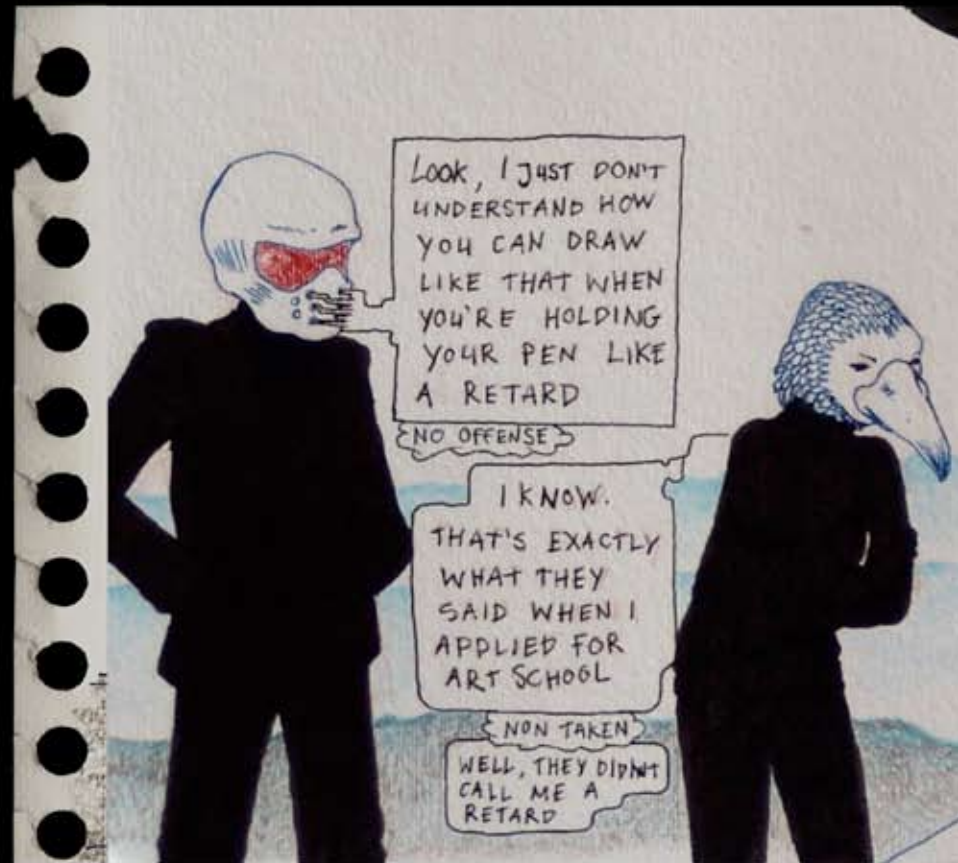 LOOK, I JUST DON'T
UNDERSTAND HOW
YOU CAN DRAW
LIKE THAT WHEN
YOU'RE HOLDING
YOUR PEN LIKE
A RETARD
NO OFFENSE
I KNOW.
THAT'S EXACTLY
WHAT THEY
SAID WHEN I
APPLIED FOR
ART SCHOOL
NON TAKEN
WELL, THEY DIDN'T
CALL ME A
RETARD